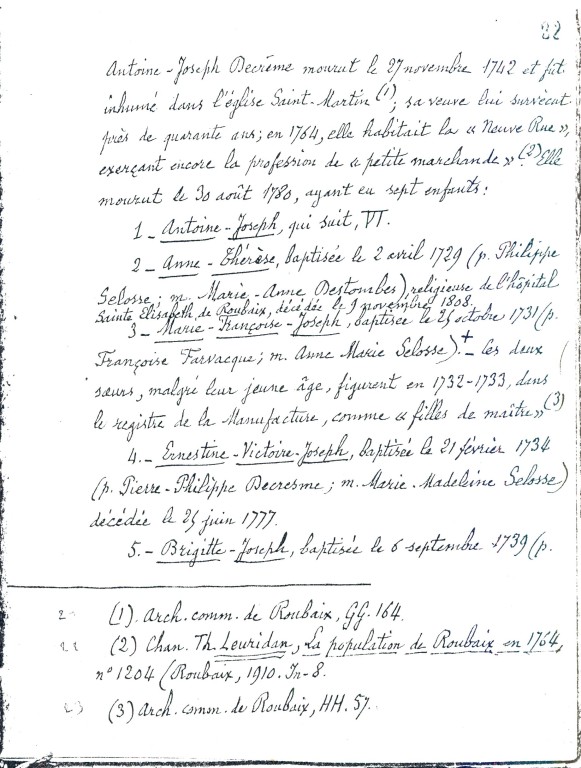 82
Antoine-Joseph Decrême mourut le 27 novembre 1742 et fut
inhumé dans l'église Saint-Martin (1); sa veuve lui survécut
près de quarante ans; en 1764, elle habitait la « Neuve Rue »,
exerçant encore la profession de « petite marchande ».(2) Elle
mourut le 30 août 1780, ayant eu sept enfants:
1_ Antoine-Joseph, qui suit, VI.
2_ Anne-Thérèse, baptisée le 2 avril 1729 (p. Philippe
Selosse; m. Marie-Anne Destombes), religieuse de l'hôpital
Sainte Elisabeth de Roubaix, décédée le 9 novembre 1808.
3_ Marie-Françoise-Joseph, baptisée le 25 octobre 1731 (p.
Françoise Farvacque; m. Anne Marie Selosse).+_ Ces deux
sœurs, malgré leur jeune âge, figurent en 1732-1733, dans
le registre de la Manufacture, comme « filles de maître » (3)
4._ Ernestine-Victoire-Joseph, baptisée le 21 février 1734
(p. Pierre-Philippe Decresme; m. Marie-Madeleine Selosse)
décédée le 25 juin 1777.
5._ Brigitte-Joseph, baptisée le 6 septembre 1739 (p.
(1). Arch. comm. de Roubaix, GG. 164.
(2) Chan. Th. Leuridan, La population de Roubaix en 1764,
n° 1204 (Roubaix, 1910. In-8.
(3) Arch. comm. de Roubaix, HH. 57.